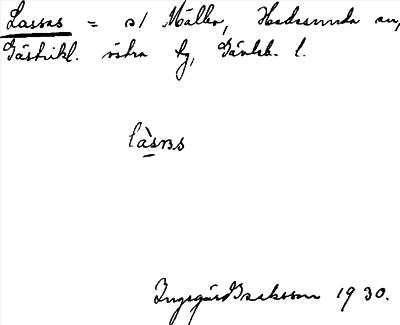 Lassas = s/ Mälby, Hedesunda sn,
Gästrikl. östra tg, Gävleb. l.
làsas
Ingegärd Isaksson 1930.